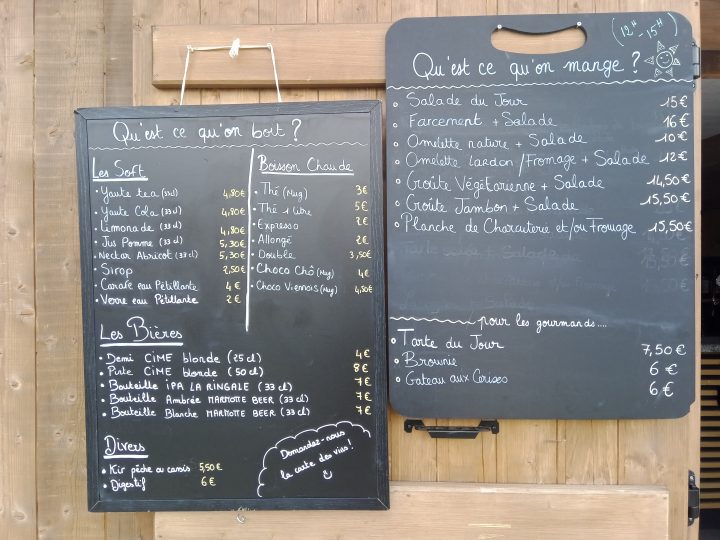 Qu'est ce qu'on boit ?
Les Soft
• Yaute tea (33cl) 4,80€
• Yaute Cola (33 cl) 4,80€
• Limonade (33 cl) 4,80€
• Jus Pomme (33 cl) 5,30€
• Nectar Abricot (33 cl) 5,30€
• Sirop 2,50€
• Carafe eau Pétillante 4€
• Verre eau Pétillante 2€
Boisson Chaude
• Thé (Mug) 3€
• Thé 1 litre 5€
• Expresso 2€
• Allongé 2€
• Double 3,50€
• Choco Chô (Mug) 4€
• Choco Viennois (Mug) 4,50€
Les Bières
• Demi CiME blonde (25 cl) 4€
• Pinte CiME blonde (50 cl) 8€
• Bouteille iPA LA RiNGALE (33 cl) 7€
• Bouteille Ambrée MARMOTTE BEER (33 cl) 7€
• Bouteille Blanche MARMOTTE BEER (33 cl) 7€
Divers
• Kir pêche ou cassis 5,50€
• Digestif 6€
Demandez-nous
la carte des vins !
(12H - 15H)
Qu'est ce qu'on mange ?
Salade du Jour 15€
Farcement + Salade 16€
Omelette nature + Salade 10€
Omelette Lardon / Fromage + Salade 12€
Croûte Végétarienne + Salade 14,50€
Croûte Jambon + Salade 15,50€
Planche de Charcuterie et/ou Fromage 15,50€
pour les gourmands....
Tarte du Jour 7,50€
Brownie 6€
Gateau aux Cerises 6€